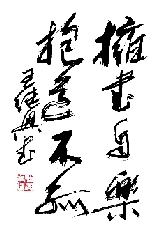 擁書自樂
抱道不孤